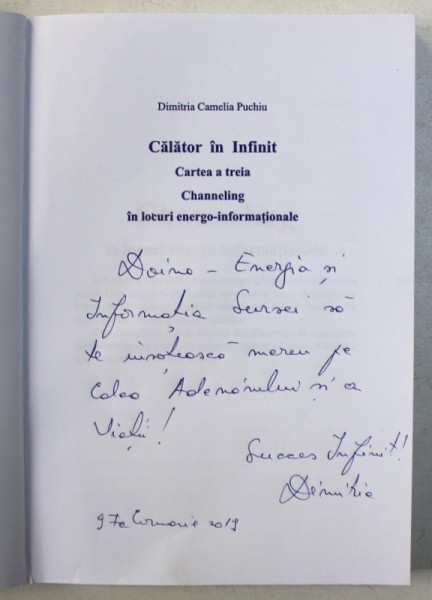 Dimitria Camelia Puchiu
Călător în Infinit
Cartea a treia
Channeling
în locuri energo-informaționale
Doina – Energia și
Informația Sursei să
te însoțească mereu pe
Calea Adevărului și a
Vieții!
Succes Infinit!
Dimitria
9 Februarie 2019